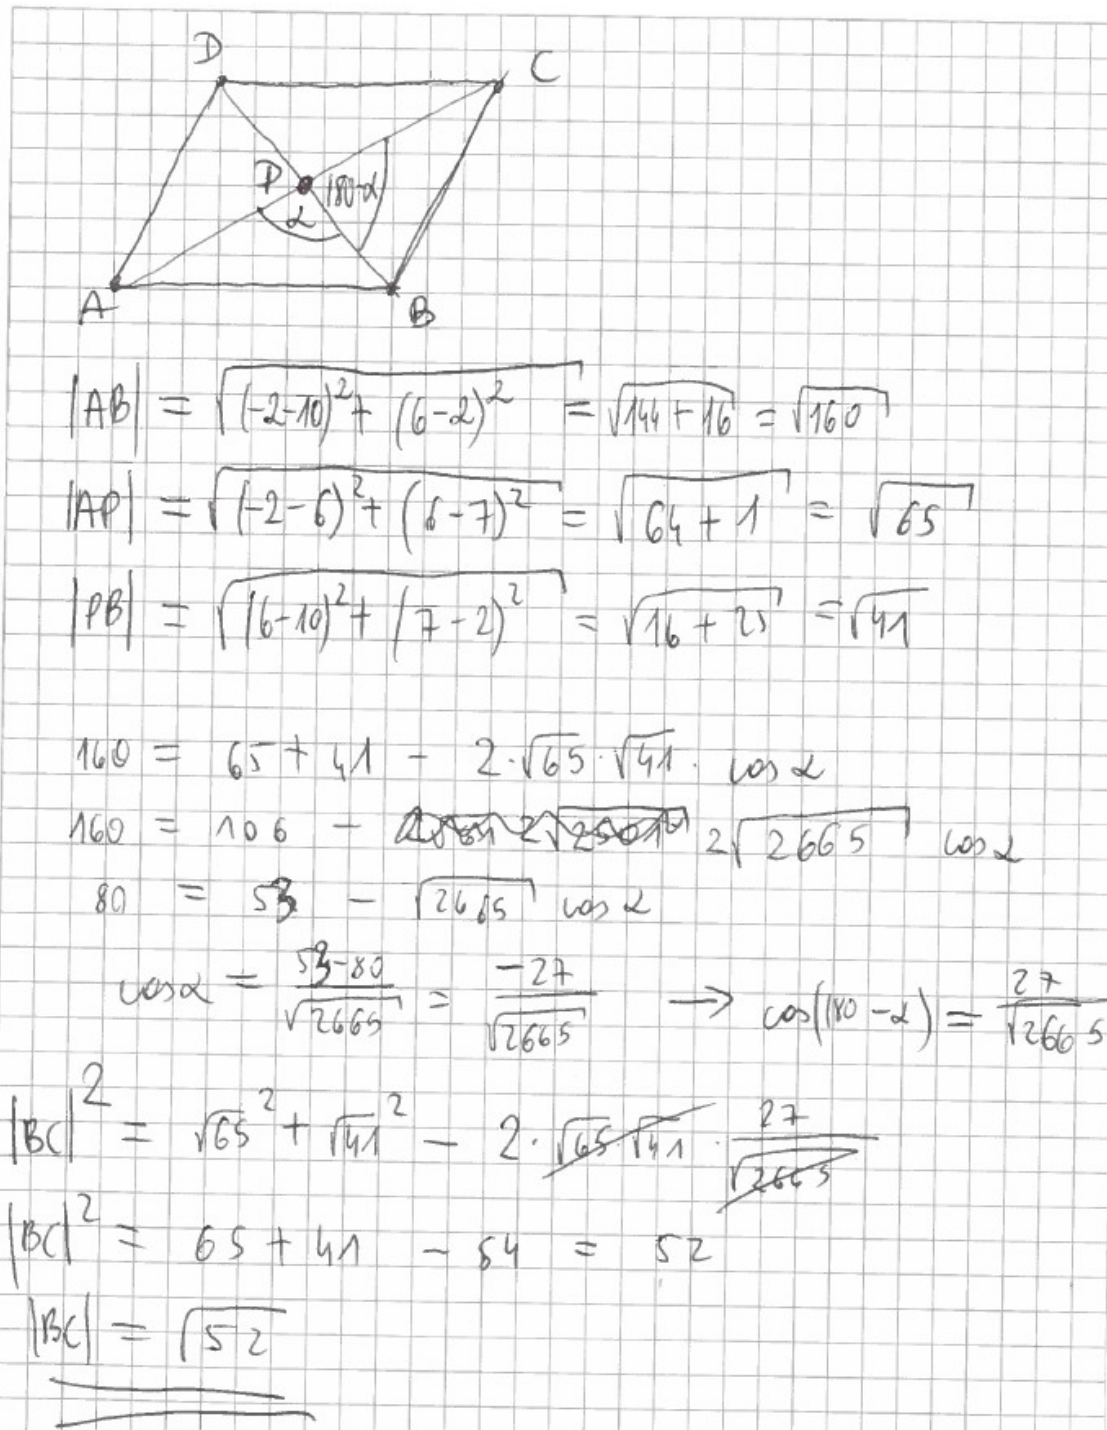 D C
P 180-α
α
A B
|AB| = √((-2-10)² + (6-2)²) = √(144+16) = √160
|AP| = √((-2-6)² + (6-7)²) = √(64+1) = √65
|PB| = √((6-10)² + (7-2)²) = √(16+25) = √41
160 = 65 + 41 - 2·√65·√41· cos α
160 = 106 - 2√2665 cos α
80 = 53 - √2665 cos α
cos α = (53-80)/√2665 = -27/√2665 → cos(180-α) = 27/√2665
|BC|² = √65² + √41² - 2·√65·√41 · 27/√2665
|BC|² = 65 + 41 - 54 = 52
|BC| = √52